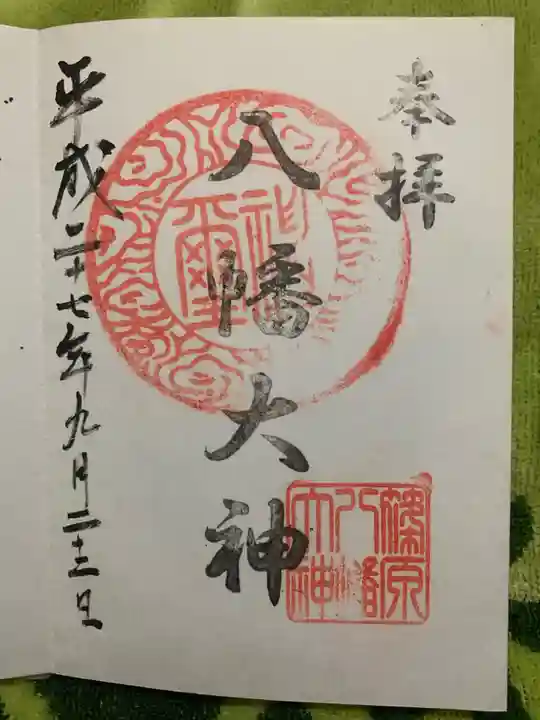 奉拝
八幡大神
平成二十七年九月二十三日
神璽
篠原
八幡
大神